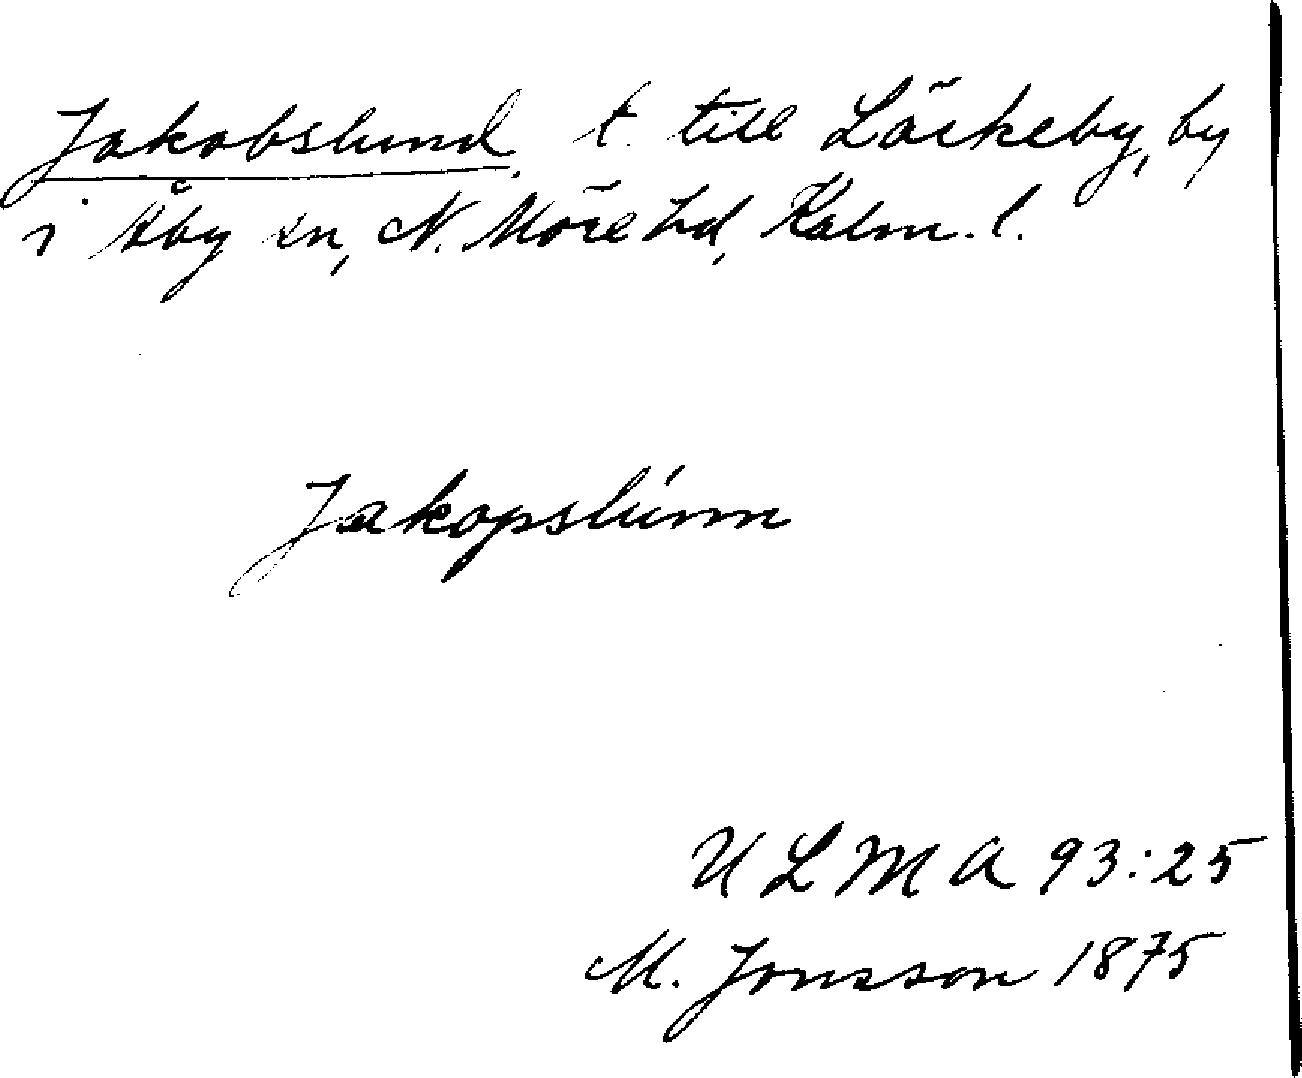 Jakobslund, t. till Läckeby, by
i Åby sn, N. Möre hd, Kalm. l.
Jakopslúnn
U L M A 93:25
M. Jonsson 1875